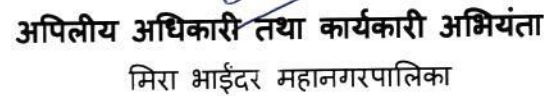 अपिलीय अधिकारी तथा कार्यकारी अभियंता
मिरा भाईंदर महानगरपालिका